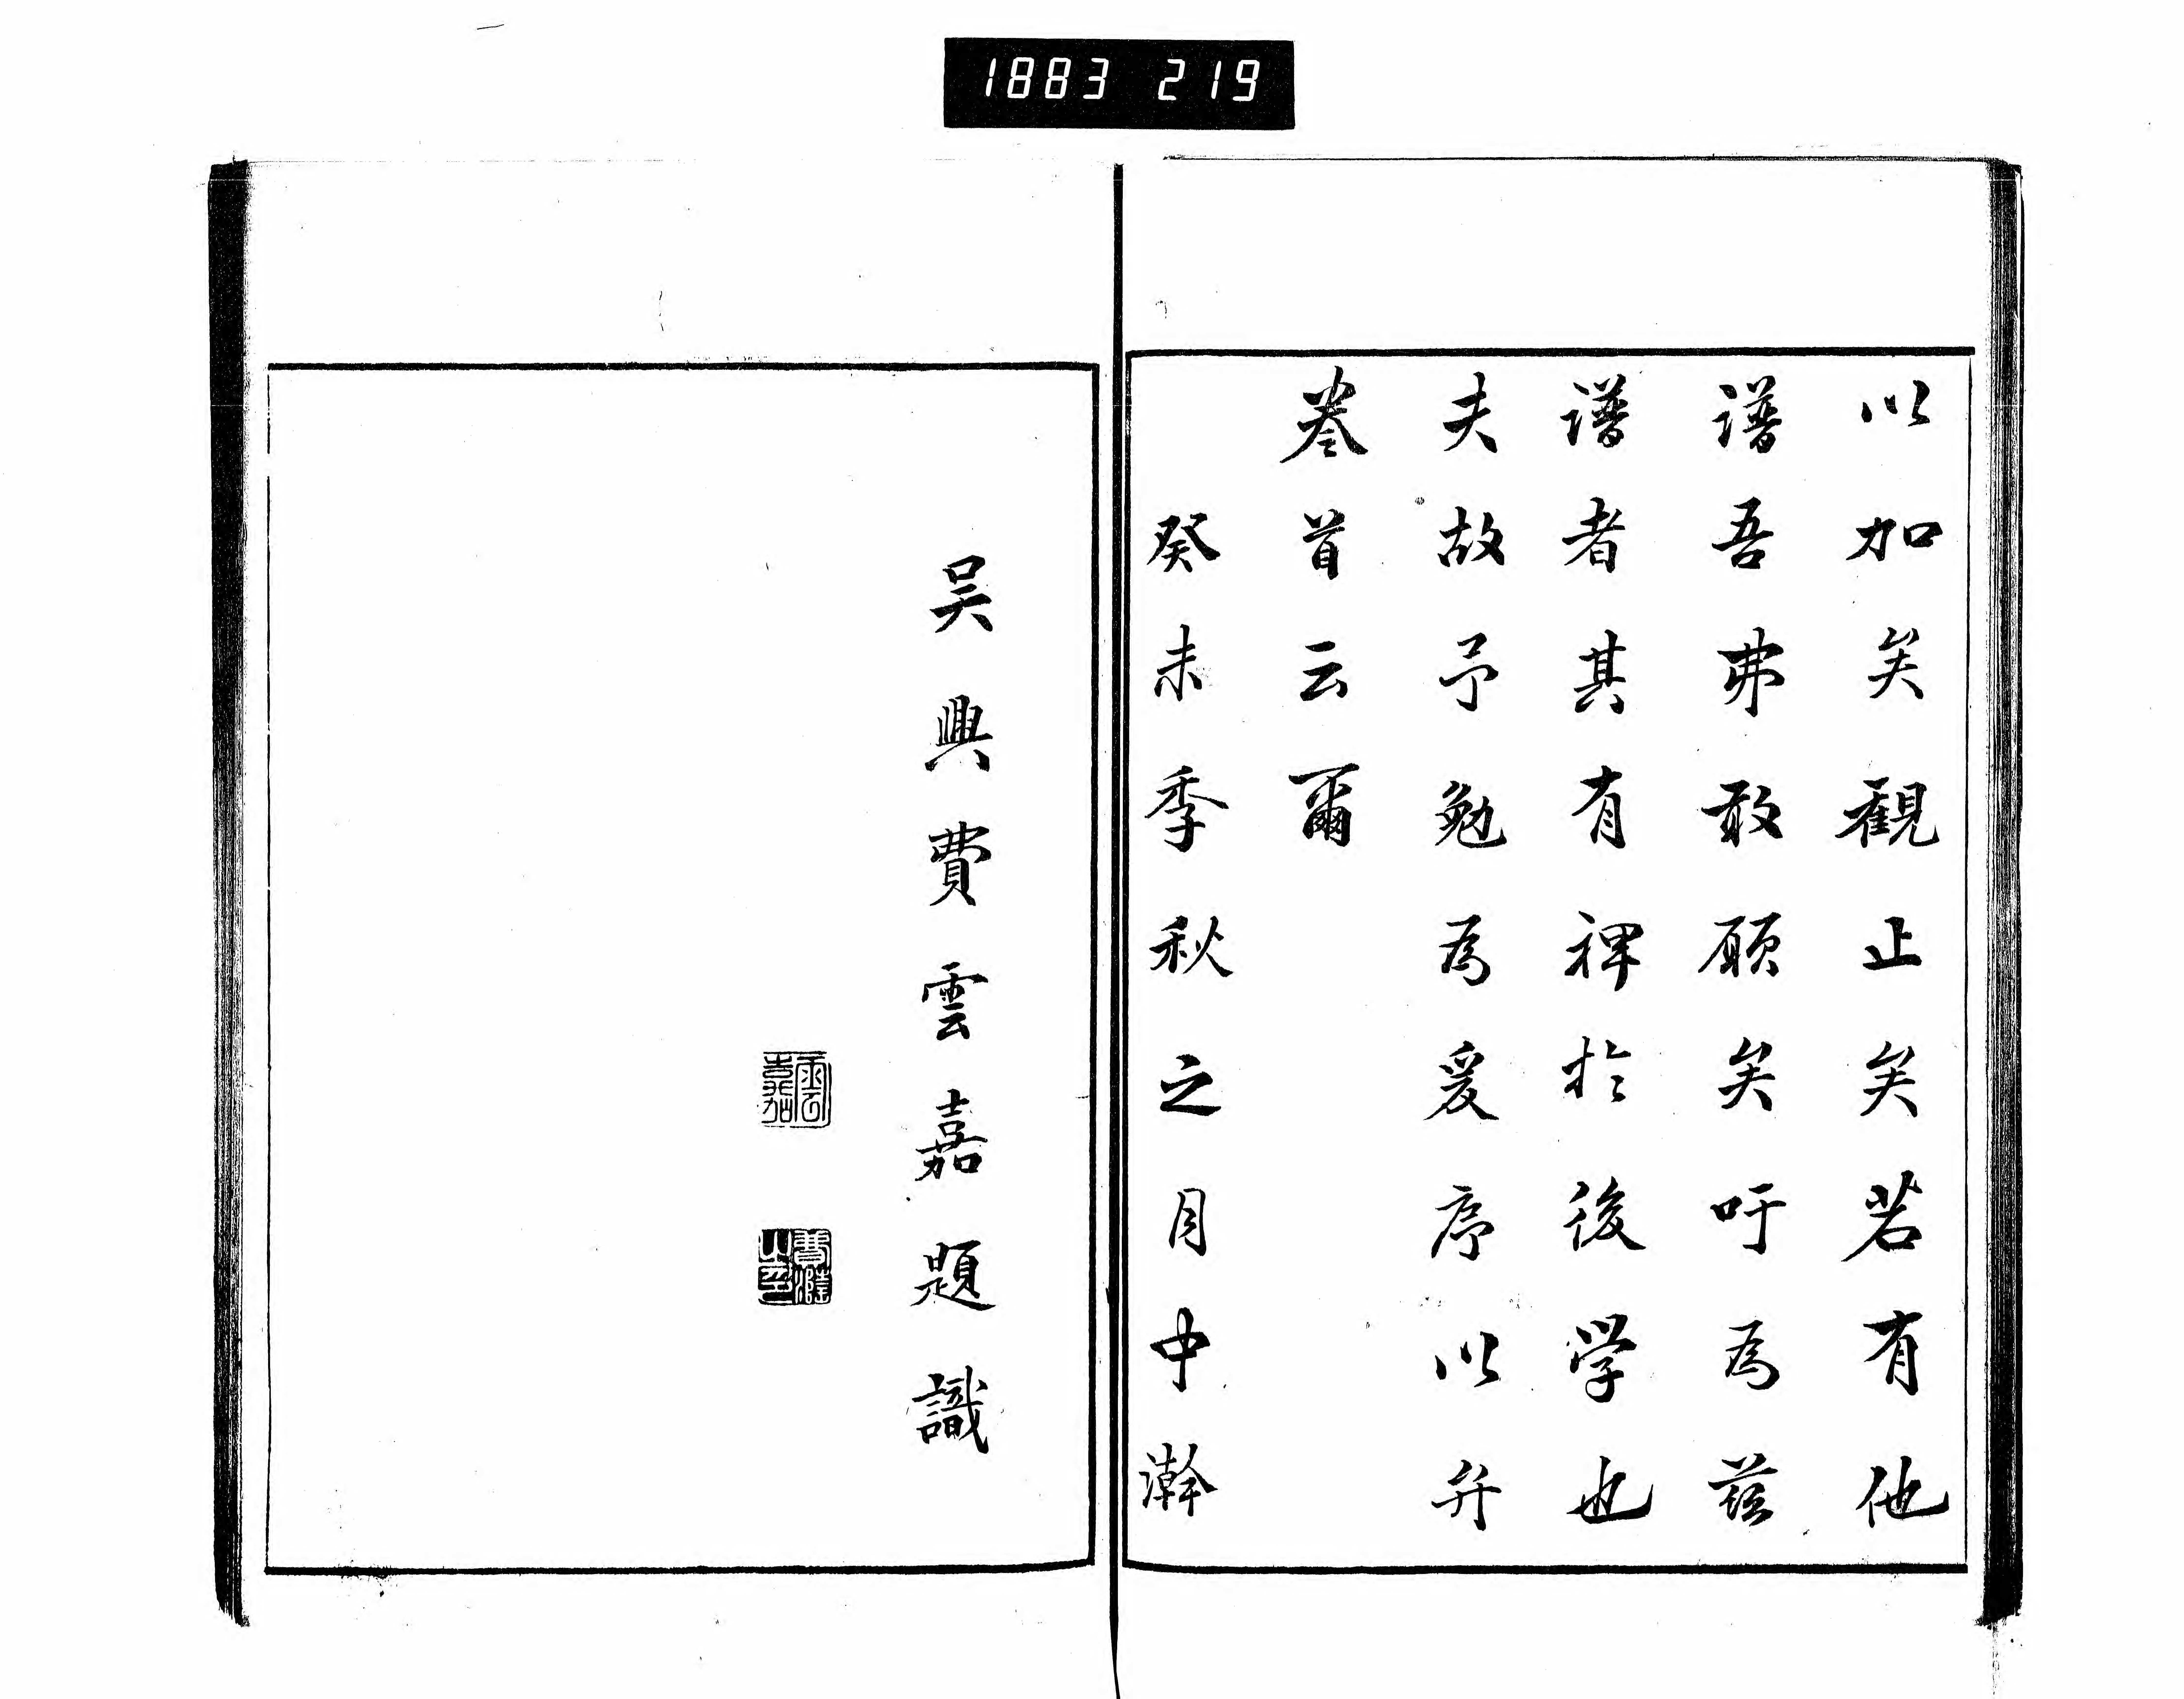 1883 219
以加矣觀止矣若有他
譜吾弗敢願矣吁為茲
譜者其有裨於後学也
夫故予勉為爰序以弁
卷首云爾
癸未季秋之月中澣
吳興費雲嘉題識